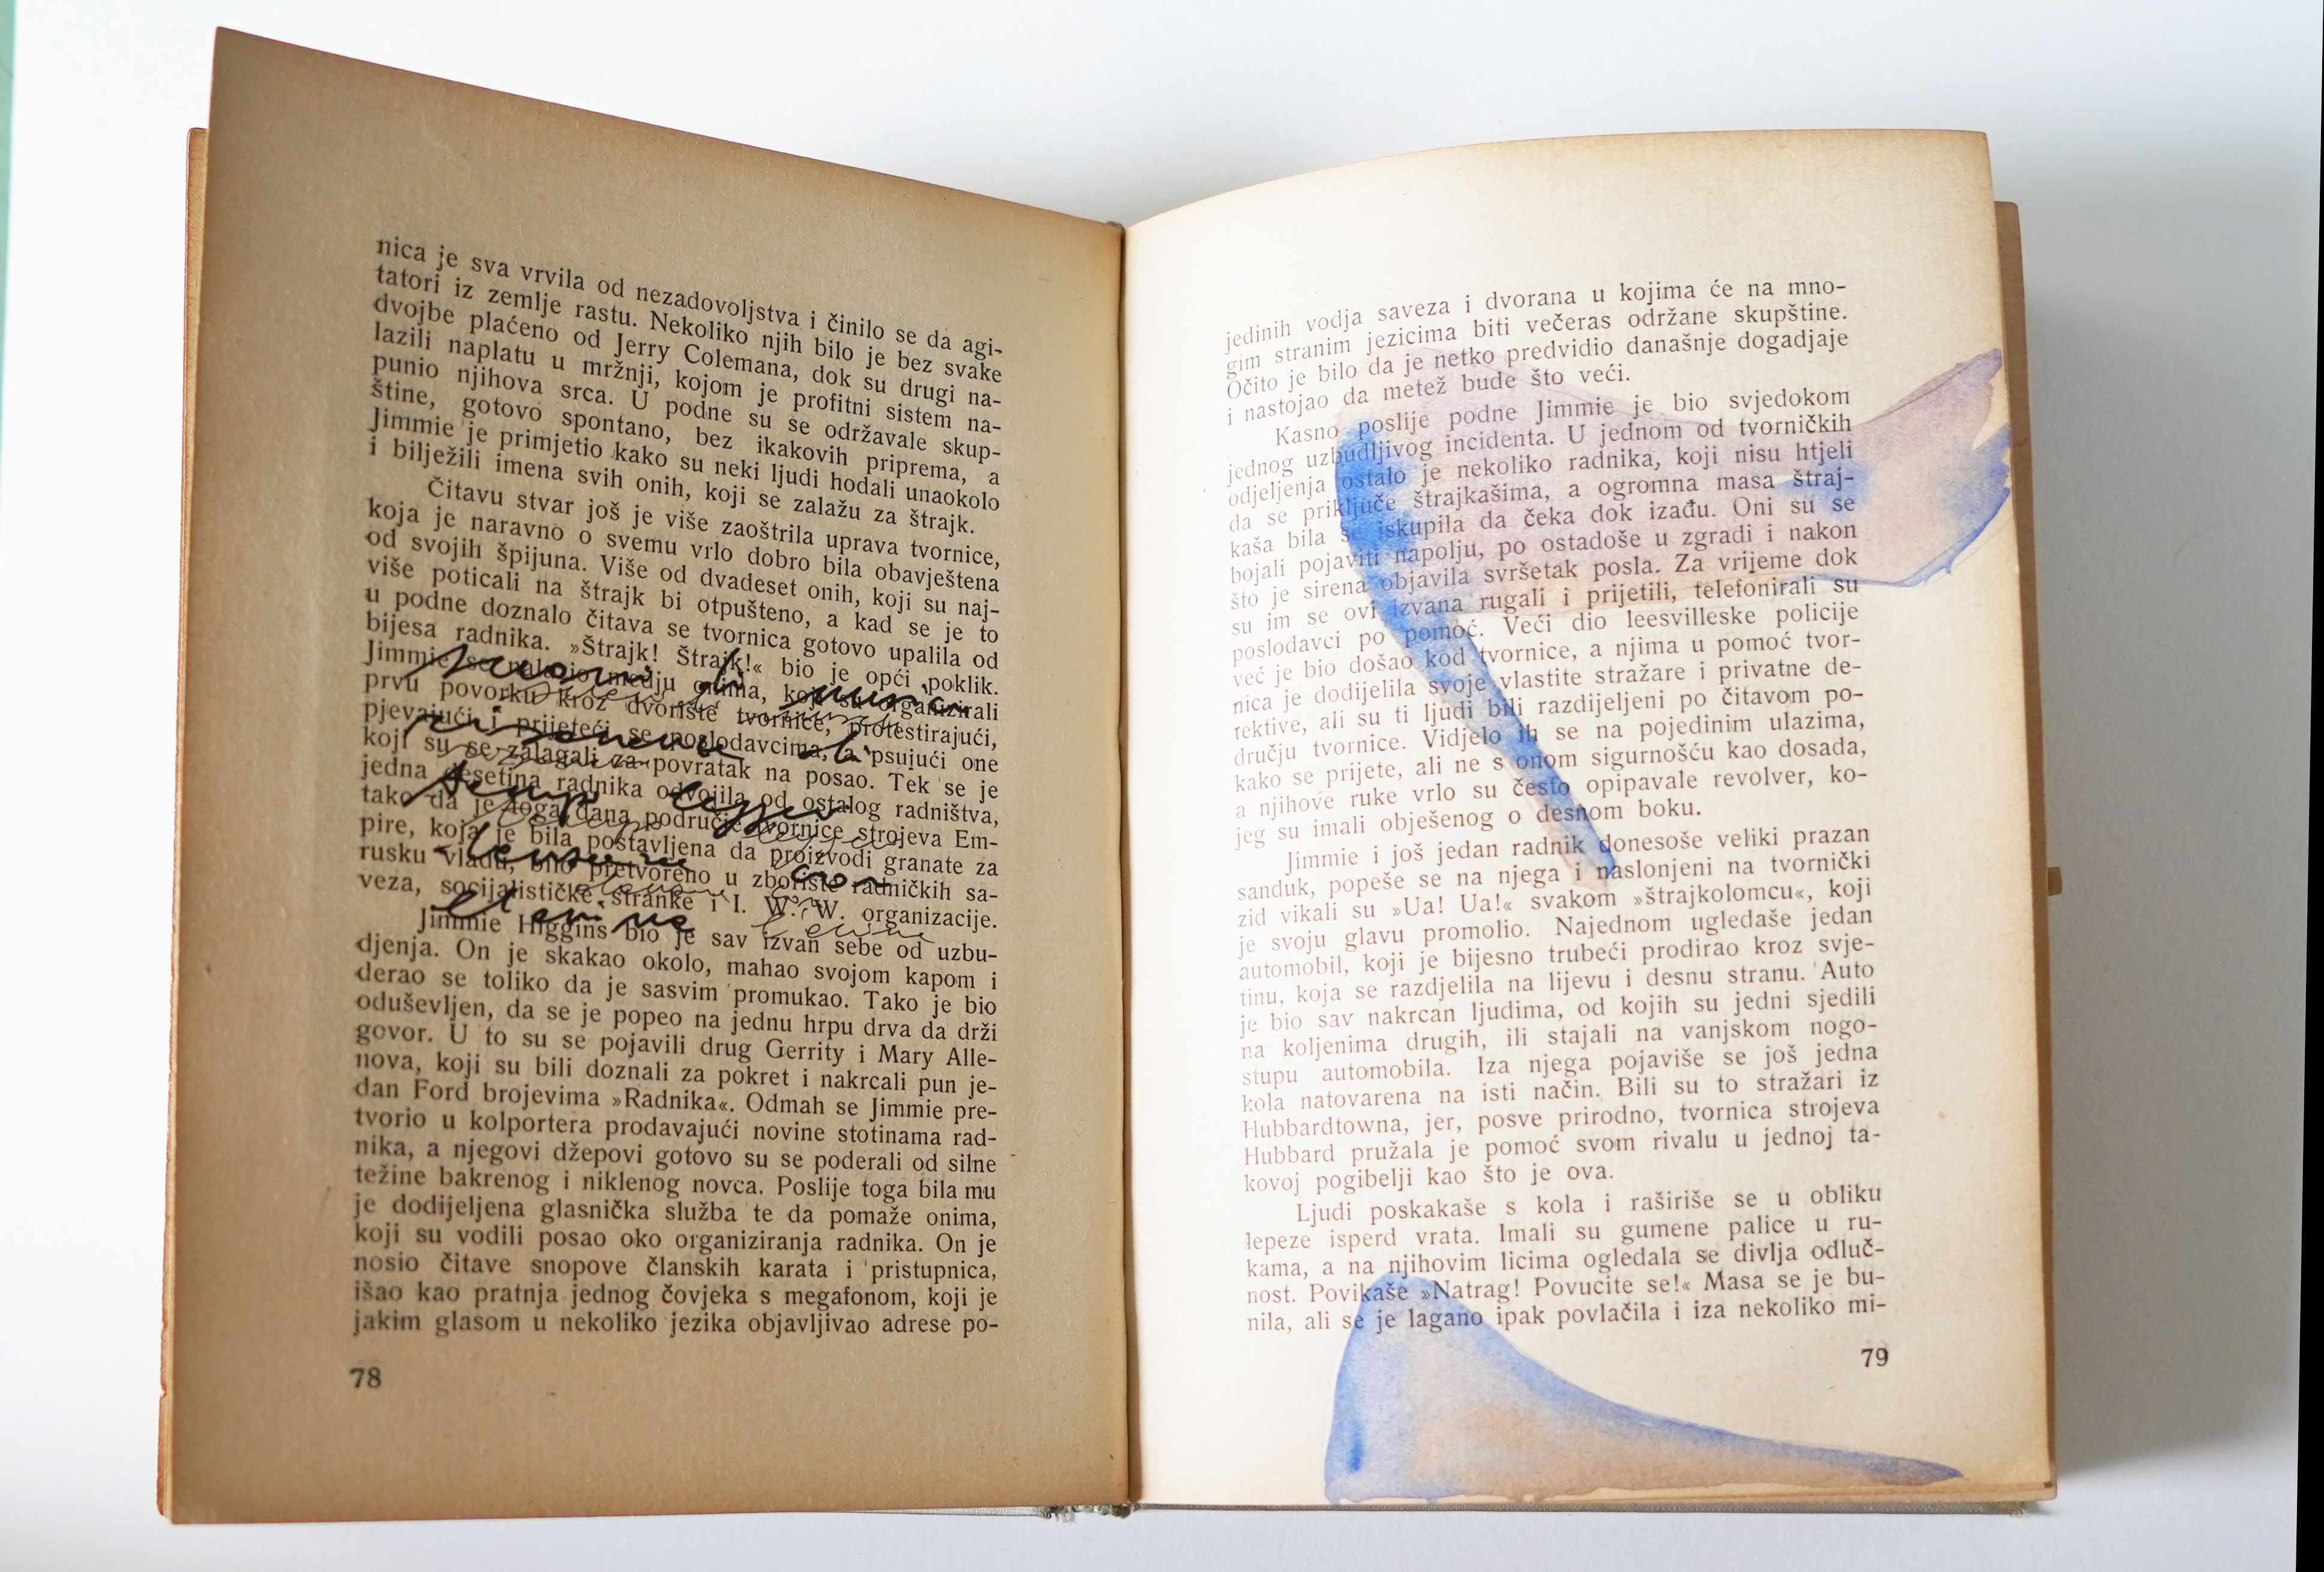 nica je sva vrvila od nezadovoljstva i činilo se da agi-
tatori iz zemlje rastu. Nekoliko njih bilo je bez svake
dvojbe plaćeno od Jerry Colemana, dok su drugi na-
lazili naplatu u mržnji, kojom je profitni sistem na-
punio njihova srca. U podne su se održavale skup-
štine, gotovo spontano, bez ikakovih priprema, a
Jimmie je primjetio kako su neki ljudi hodali unaokolo
i bilježili imena svih onih, koji se zalažu za štrajk.
Čitavu stvar još je više zaoštrila uprava tvornice,
koja je naravno o svemu vrlo dobro bila obavještena
od svojih špijuna. Više od dvadeset onih, koji su naj-
više poticali na štrajk bi otpušteno, a kad se je to
u podne doznalo čitava se tvornica gotovo upalila od
bijesa radnika. »Štrajk! Štrajk!« bio je opći poklik.
Jimmie se nalazio medju onima, koji su organizirali
prvu povorku kroz dvorište tvornice, protestirajući,
pjevajući i prijeteći se poslodavcima, a psujući one
koji su se zalagali za povratak na posao. Tek se je
jedna desetina radnika odvojila od ostalog radništva,
tako da je toga dana područje tvornice strojeva Em-
pire, koja je bila postavljena da proizvodi granate za
rusku vladu, bilo pretvoreno u zborište radničkih sa-
veza, socijalističke stranke i I. W. W. organizacije.
Jimmie Higgins bio je sav izvan sebe od uzbu-
djenja. On je skakao okolo, mahao svojom kapom i
derao se toliko da je sasvim promukao. Tako je bio
oduševljen, da se je popeo na jednu hrpu drva da drži
govor. U to su se pojavili drug Gerrity i Mary Alle-
nova, koji su bili doznali za pokret i nakrcali pun je-
dan Ford brojevima »Radnika«. Odmah se Jimmie pre-
tvorio u kolportera prodavajući novine stotinama rad-
nika, a njegovi džepovi gotovo su se poderali od silne
težine bakrenog i niklenog novca. Poslije toga bila mu
je dodijeljena glasnička služba te da pomaže onima,
koji su vodili posao oko organiziranja radnika. On je
nosio čitave snopove članskih karata i pristupnica,
išao kao pratnja jednog čovjeka s megafonom, koji je
jakim glasom u nekoliko jezika objavljivao adrese po-
78
jedinih vodja saveza i dvorana u kojima će na mno-
gim stranim jezicima biti večeras održane skupštine.
Očito je bilo da je netko predvidio današnje dogadjaje
i nastojao da metež bude što veći.
Kasno poslije podne Jimmie je bio svjedokom
jednog uzbudljivog incidenta. U jednom od tvorničkih
odjeljenja ostalo je nekoliko radnika, koji nisu htjeli
da se priključe štrajkašima, a ogromna masa štraj-
kaša bila se iskupila da čeka dok izađu. Oni su se
bojali pojaviti napolju, po ostadoše u zgradi i nakon
što je sirena objavila svršetak posla. Za vrijeme dok
su im se ovi izvana rugali i prijetili, telefonirali su
poslodavci po pomoć. Veći dio leesvilleske policije
već je bio došao kod tvornice, a njima u pomoć tvor-
nica je dodijelila svoje vlastite stražare i privatne de-
tektive, ali su ti ljudi bili razdijeljeni po čitavom po-
dručju tvornice. Vidjelo ih se na pojedinim ulazima,
kako se prijete, ali ne s onom sigurnošću kao dosada,
a njihove ruke vrlo su često opipavale revolver, ko-
jeg su imali obješenog o desnom boku.
Jimmie i još jedan radnik donesoše veliki prazan
sanduk, popeše se na njega i naslonjeni na tvornički
zid vikali su »Ua! Ua!« svakom »štrajkolomcu«, koji
je svoju glavu promolio. Najednom ugledaše jedan
automobil, koji je bijesno trubeći prodirao kroz svje-
tinu, koja se razdjelila na lijevu i desnu stranu. Auto
je bio sav nakrcan ljudima, od kojih su jedni sjedili
na koljenima drugih, ili stajali na vanjskom nogo-
stupu automobila. Iza njega pojaviše se još jedna
kola natovarena na isti način. Bili su to stražari iz
Hubbardtowna, jer, posve prirodno, tvornica strojeva
Hubbard pružala je pomoć svom rivalu u jednoj ta-
kovoj pogibelji kao što je ova.
Ljudi poskakaše s kola i raširiše se u obliku
lepeze isperd vrata. Imali su gumene palice u ru-
kama, a na njihovim licima ogledala se divlja odluč-
nost. Povikaše »Natrag! Povucite se!« Masa se je bu-
nila, ali se je lagano ipak povlačila i iza nekoliko mi-
79